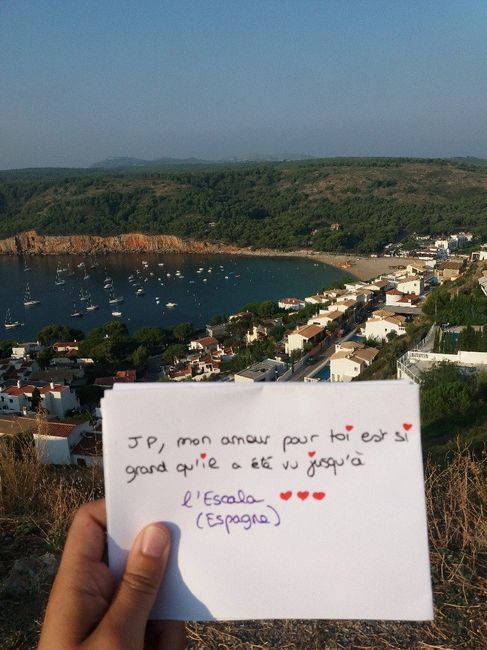 JP, mon amour pour toi est si
grand qu'il a été vu jusqu'à
l'Escala ♥♥♥
(Espagne)